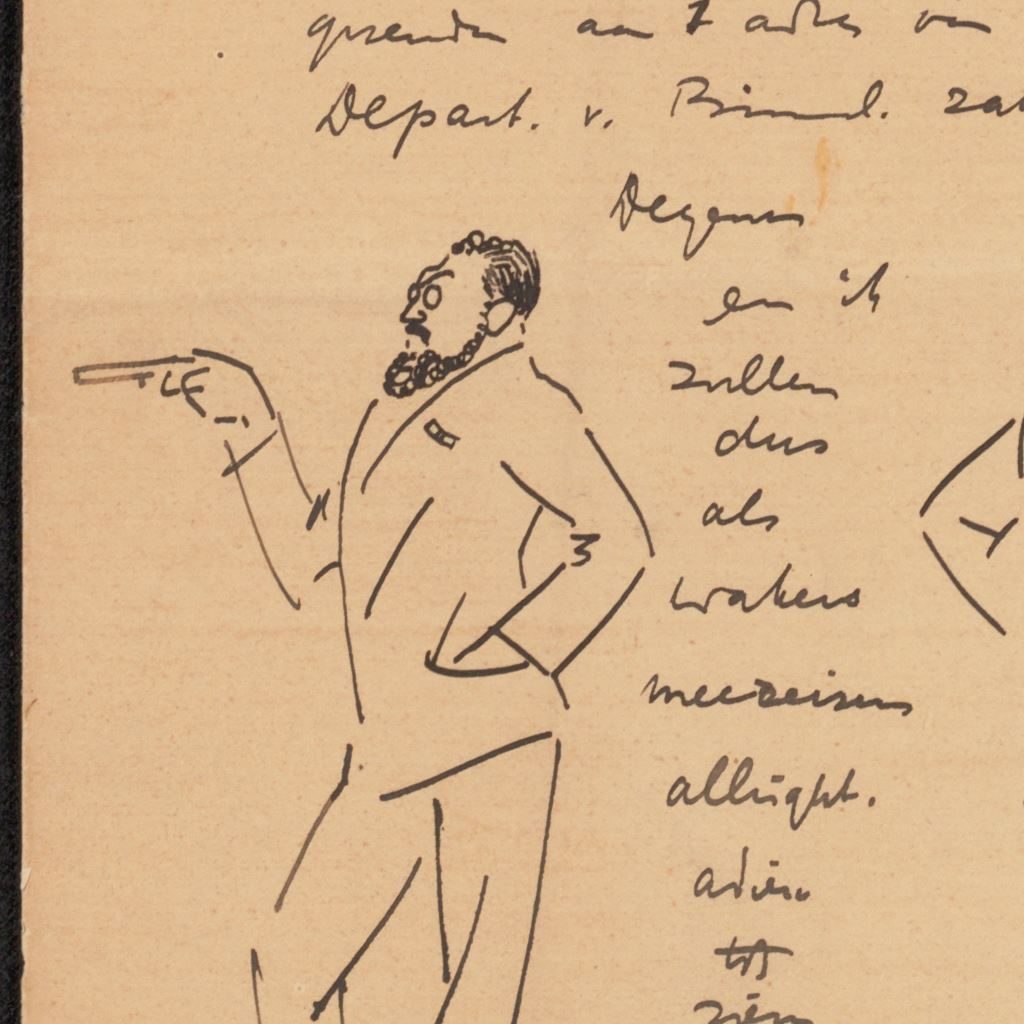 gezenden aan 't adres van
Depart. v. Binnl. zak
Degenen
en ik
zullen
dus
als
wakers
meereizen
allright.
adieu
tot
zien